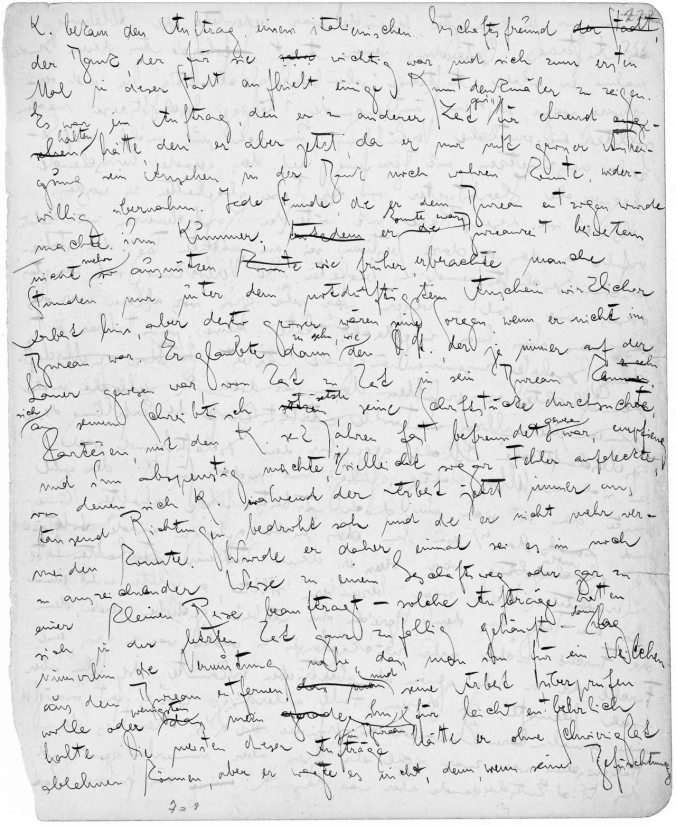 K. bekam den Auftrag, einem italienischen Geschäftsfreund der Stadt,
der Bank der für sie sehr wichtig war und sich zum ersten
Mal in dieser Stadt aufhielt, einige Kunstdenkmäler zu zeigen.
Es war ein Auftrag den er zu anderer Zeit gewiss für ehrend ange-
halten hätte, den er aber jetzt da er nur mit grosser Anstren-
gung sein Ansehen in der Bank noch wahren konnte, wider-
willig übernahm. Jede Stunde die er dem Bureau entzogen wurde
machte ihm Kummer, er konnte zwar die Bureauzeit beiweitem
nicht mehr so ausnützen konnte wie früher, er brachte manche
Stunden nur unter dem notdürftigsten Anschein wirklicher
Arbeit hin, aber desto grösser waren seine Sorgen, wenn er nicht im
Bureau war. Er glaubte dann zu sehn, wie der D. St. der ja immer auf der
Lauer gewesen war, von Zeit zu Zeit in sein Bureau kam,
sich an seinen Schreibtisch setzte seine Schriftstücke durchsuchte,
Parteien, mit denen K. seit Jahren fast befreundet gewesen war, empfieng
und ihm abspenstig machte, ja vielleicht sogar Fehler aufdeckte,
von denen sich K. während der Arbeit jetzt immer aus
tausend Richtungen bedroht sah und die er nicht mehr ver-
meiden konnte. Wurde er daher einmal sei es in noch
so auszeichnender Weise zu einem Geschäftsweg oder gar zu
einer kleinen Reise beauftragt – solche Aufträge hatten
sich in der letzten Zeit ganz zufällig gehäuft – dann lag
immerhin die Vermutung nahe, dass man ihn für ein Weilchen
aus dem Bureau entfernen und seine Arbeit überprüfen
wolle oder wenigstens dass man ihn im Bureau für leicht entbehrlich
halte. Die meisten dieser Aufträge hätte er ohne Schwierigkeit
ablehnen können, aber er wagte es nicht, denn wenn seine Befürchtung